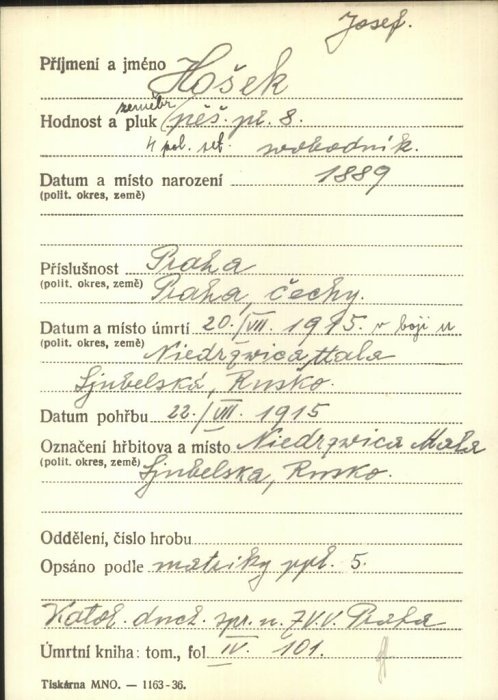 Josef.
Příjmení a jméno Hošek
zeměbr.
Hodnost a pluk pěš. pl. 8.
4 pol. set. svobodník.
Datum a místo narození 1889
(polit. okres, země)
Příslušnost Praha
(polit. okres, země) Praha, Čechy.
Datum a místo úmrtí 20./VII. 1915. v boji u
(polit. okres, země) Niedrzwica Mala
Ljubelská, Rusko.
Datum pohřbu 22./VII. 1915
Označení hřbitova a místo Niedrzwica Mala
(polit. okres, země) Ljubelska, Rusko.
Oddělení, číslo hrobu
Opsáno podle matriky ppl. 5.
Katol. duch. spr. u. Z.V.V. Praha
Úmrtní kniha: tom., fol IV. 101.
Tiskárna MNO. — 1163-36.